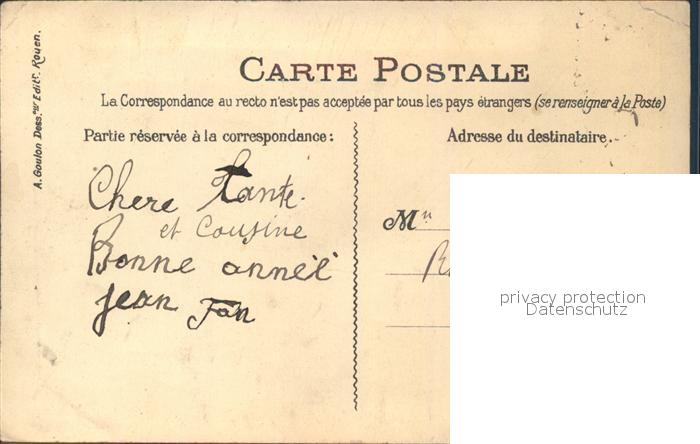 CARTE POSTALE
La Correspondance au recto n'est pas acceptée par tous les pays étrangers (se renseigner à la Poste)
Partie réservée à la correspondance :
Adresse du destinataire.
A. Goulon Dess.eur Edit.r Rouen.
Chere Tante.
et Cousine
Bonne année
jean
M
privacy protection
Datenschutz